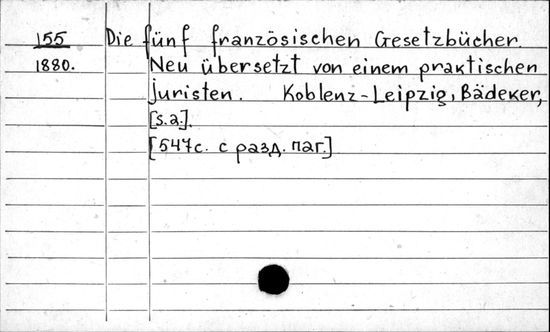 155 Die fünf französischen Gesetzbücher.
1880. Neu übersetzt von einem praktischen
Juristen. Koblenz-Leipzig, Bädeker,
[s.a.].
[547с. с разд. паг.]